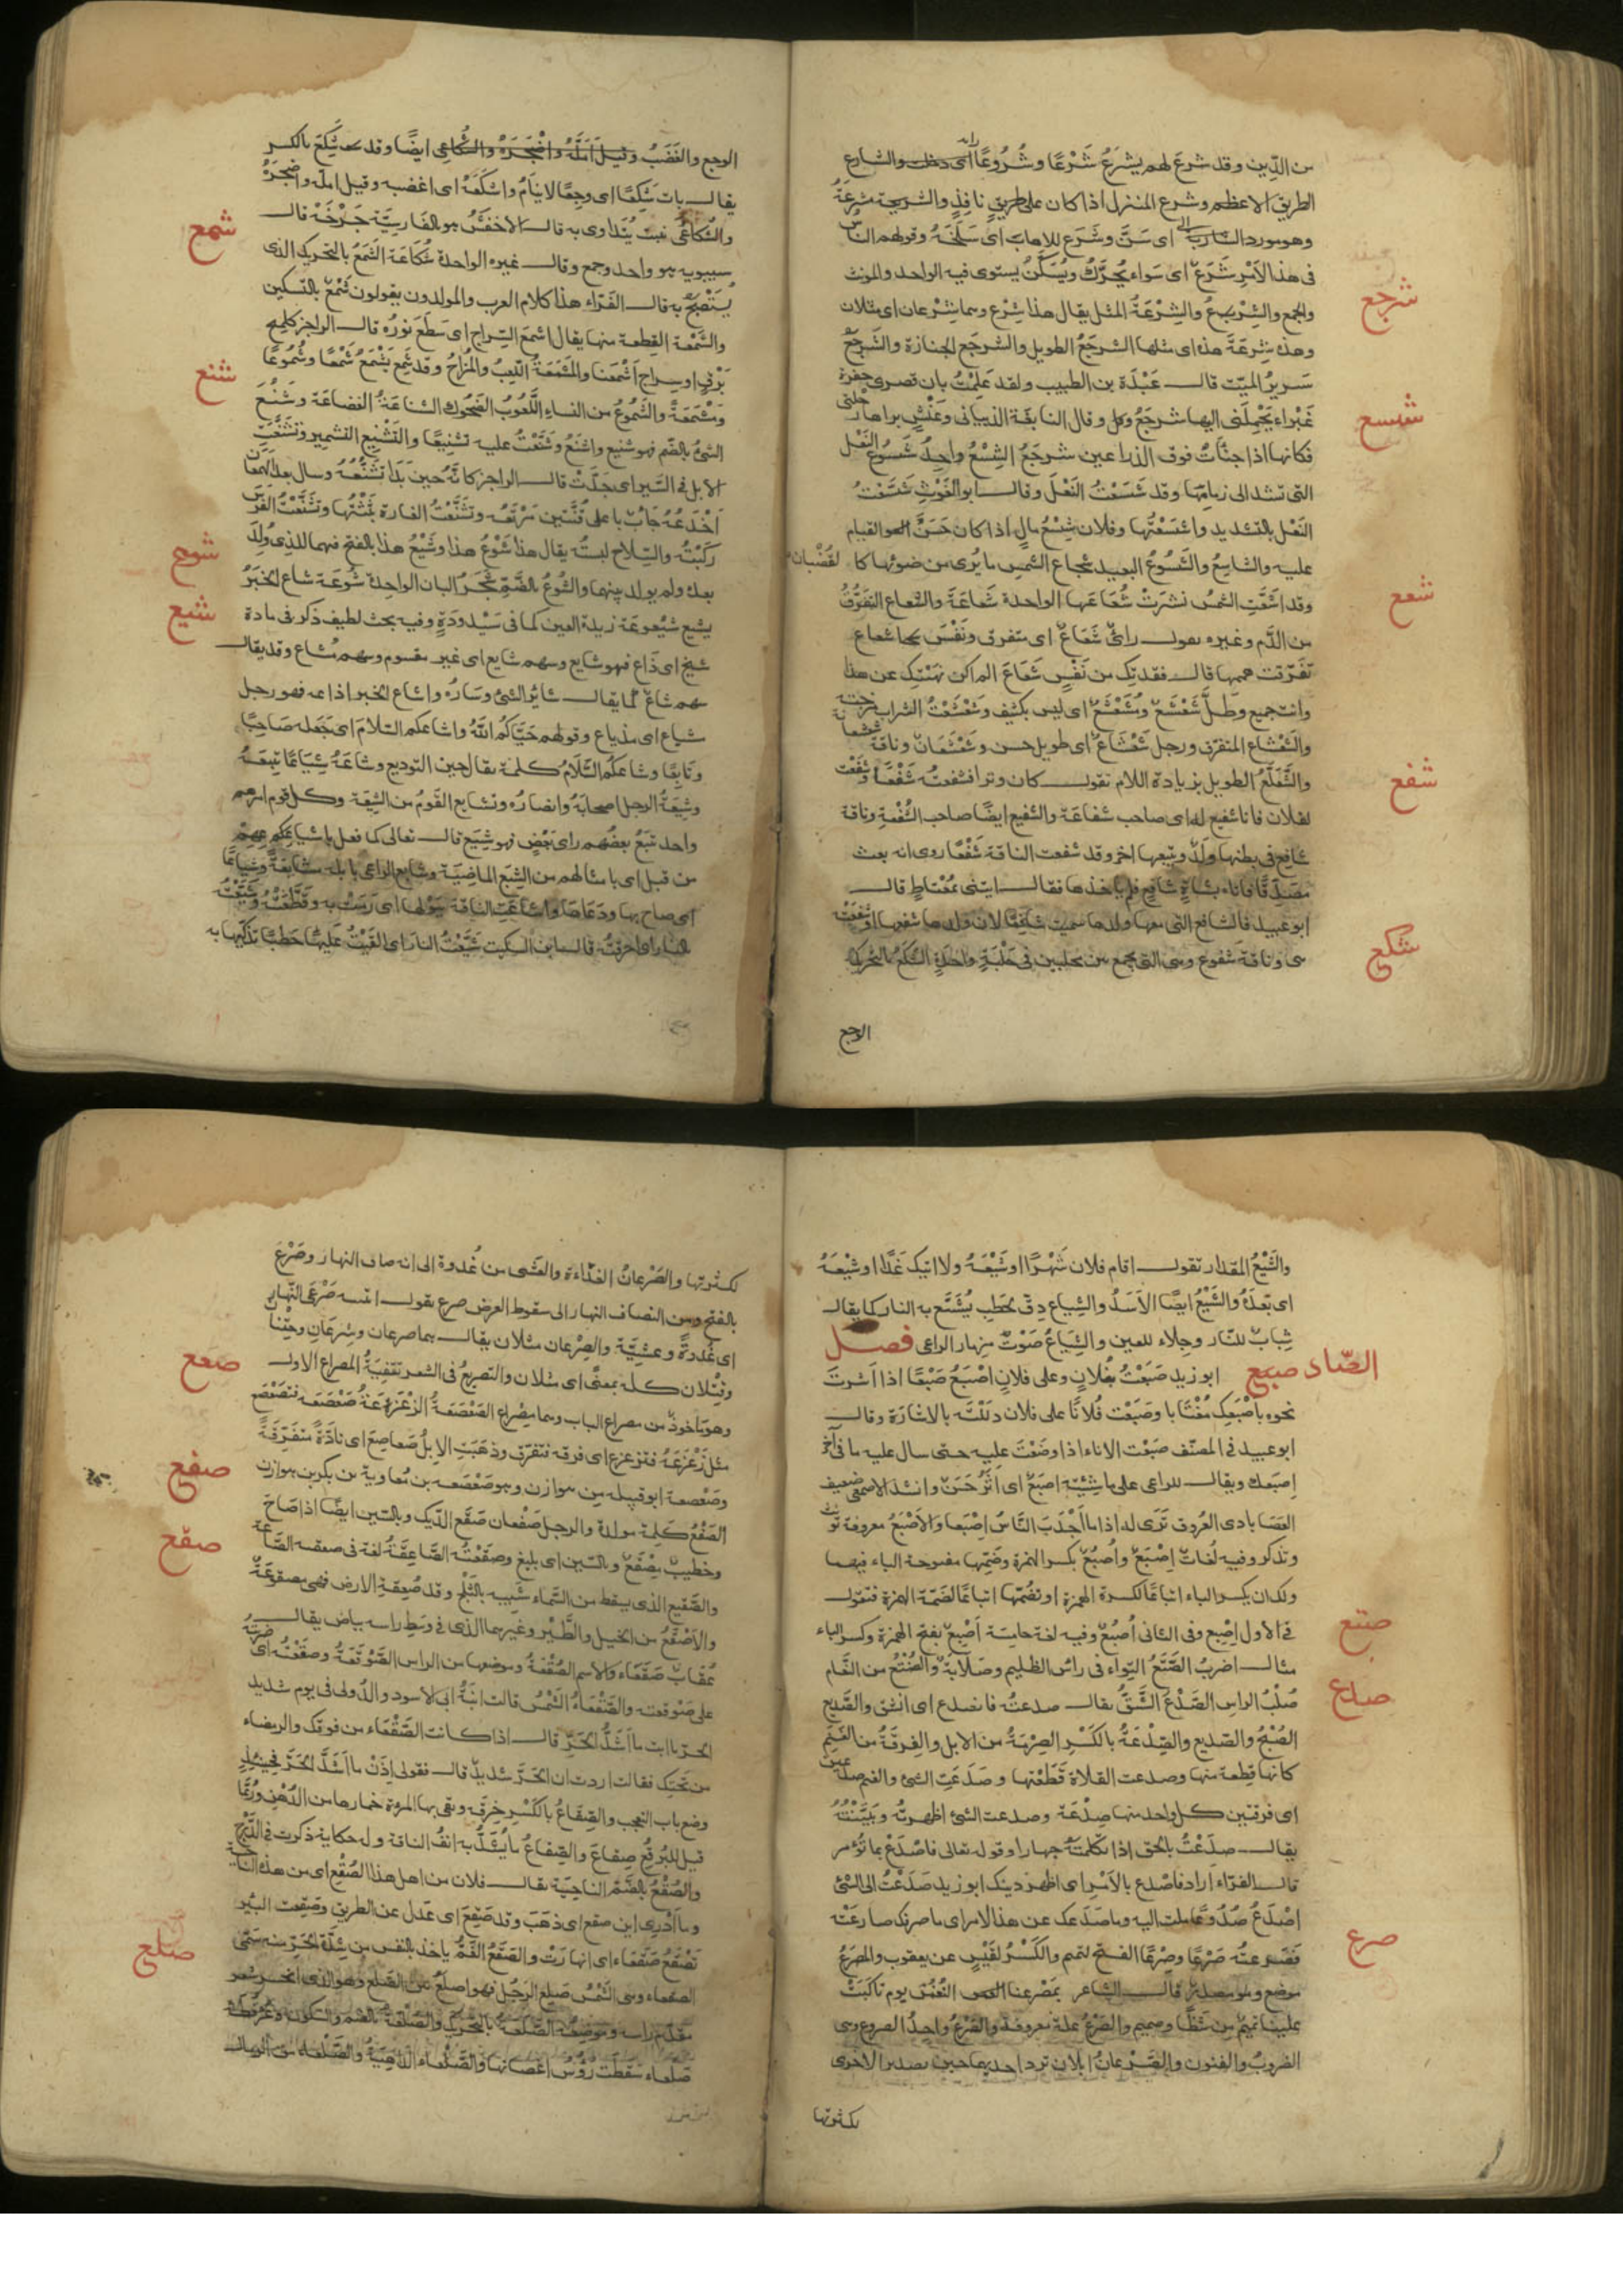 من الدين وقد شرع لهم يشرع شَرْعًا وشُرُوعًا اى والشارع
الطريق الاعظم وشرع المنزل اذا كان على طريق نافذ والشريعة شرعة
اى سَنَّ وشَرَع للاهاب اى سَلَخَهُ وقولهم الناس
فى هذا الأمْرِ شَرَعٌ اى سَواء يُحَرَّكُ ويُسَكَّنُ يستوى فيه الواحد والمونث
والجمع والشِّرْعَةُ المثل يقال هذا شِرْع وهما شِرْعان اى مثلان
شرجع
وهذه شِرعَة هذه اى مثلها الشرجَعُ الطويل والشرجَع الجنازة والشرجَعُ
سَريرُ الميّت قال عَبْدَة بن الطبيب ولقد عَلِمْتُ بان قصرى حفرة
غَبْراء يَحْمِلُنى اليها شرجَعُ وقال النابغة الذبيانى وعَنْسٍ براها رحلتى
شسع
فكانها اذا جنأت فوق الذراعين شرجَعُ الشِسْعُ واحِدُ شُسُوع النَعْل
التى تشد الى زمامها وقد شَسَعْتُ النَعْلَ وقال ابو الغَوْثِ شَسَّعْتُ
النَعْل بالتشديد واشسَعْتُها وفلان شِسْعُ مالٍ اذا كان حَسَنَ القيام
شعع
عليه والشاسِعُ والشَسُوعُ البعيد شعاع الشمس ما يُرى من ضوئها كالقُضْبان
وقد اشَعَّتِ الشمسُ نشرَتْ شُعَاعَها الواحدة شُعَاعَةٌ والشَعاع التفَرّقُ
من الدَّم وغيره يقول رائٌ شَعَاعٌ اى متفرق ونَفْسٌ شعاع
تفَرّقت هممها قال فقدتِك من نَفْسٍ شَعَاعَ الم اكن نهَيْتكِ عن هذا
وانتِ جميع وظِلٌّ شَعْشَعٌ ومُشَعْشَعٌ اى ليس بكثيف وشَعْشَعْتُ الشراب مزجته
والشَعْشاع المتفرق ورجل شَعْشَاعٌ اى طويل حسن وشَعْشَعَانٌ وناقة
شفع
والشَعَلَّعُ الطويل بزيادة اللام تقول كان وترا فشفعتُه شَفْعًا وشَفَعْت
لفلان فانا شفيع له اى صاحب شفاعَة والشفيع ايضًا صاحب الشُفْعَةِ وناقة
شافِعٌ فى بطنها ولَدٌ ويتبعها اخر وقد شفعت الناقة شَفْعًا روى انه بعث
مصدقًا فاتاه بشاةٍ شافِع فلم ياخذها فقال ايتنى بمُعْتاطٍ قال
ابو عبيد فالشافع التى معها ولدها سميت شافِعًا لان ولدها شفعها او شفعَتْه
شكع
هى وناقة شفوع وهى التى تجمع بين محلبين فى حَلْبَةٍ واحدَةٍ الشَكَعُ بالتحريك
الوجع
الوجع والغَضَبُ ايضًا وقد شَكِعَ بالكسر
يقال بات شَكِعًا اى وجِعًا لا يَنامُ واشكَعَهُ اى اغضبه وقيل امله واضجَرَهُ
والشكَاعَى نبت يُتداوى به قال الاخفشُ هو بالفارسيّة جَرْخَهْ قال
شمع
سيبويه هو واحد وجمع وقال غيره الواحدة شُكَاعَة الشَمَعُ بالتحريك الذى
يُسْتَصْبَحُ به قال الفَرّاء هذا كلام العرب والمولدون يقولون شَمْعٌ بالتسكين
والشَمْعَة القِطعة منها يقال اشمعَ السِّراج اى سَطَعَ نُورُه قال الراجز كلمع
بَرْقٍ او سراجٍ اشْمَعَنا والمَشْمَعَةُ اللَعِبُ والمُزاحُ وقد شَمَع يَشْمَعُ شَمْعًا وشُمُوعًا
شنع
ومَشْمَعَةً والشَمُوعُ من النساء اللَّعُوبُ الضَحُوك الشناعَةُ الفضاعَة وشَنُعَ
الشئ بالضّم فهو شنيع واشنَعُ وشَنَّعْتُ عليه تشنيعًا والتَشْنِيع التشمير وتشنّعَتِ
الابل فى السَير اى جَدَّتْ قال الراجز كانَّهُ حينَ بَدَا تَشَنُّعُهُ وسال بعد
اَخْدَعُهُ جَابٌ باعلى قُنَّتين مَرْتَعُه وتشَنَّعْتُ الغارة بَثَثْتُها وتشَنَّعْتُ الفَرَس
شوع
رَكِبْتُه والسِّلاحَ لبستُه يقال هذا شَوْعُ هذا وشَيْعُ هذا بالفتح فيهما للذى وُلِدَ
بعده ولم يولد بينهما والشُوعُ بالضَمِّ شَجَرُ البان الواحدة شُوعَة شاع الخَبَرُ
شيع
يشيع شيْعوعَة زيدة العين كما فى سَيْدودَةٍ وفيه بحث لطيف ذكر فى مادة
شيخ اى ذاع فهو شايع وسهم شايع اى غير مقسوم وسهم مُشاع وقد يقال
سهم شاعٌ كما يقال سائرُ الشئ وسَارُه واشاع الخبر اذاعه فهو رجل
شياع اى مذياع وقولهم حَيَّاكمُ اللهُ واشاعكم السّلام اى جَعَله صَاحِبًا
وتابِعًا وشاعكُم السَّلامُ كلمة يقال حين التوديع وشاعَهُ شِيَاعًا تبِعَهُ
وشِيعَةُ الرجل اصحابُهُ وانصارُه وتشايع القَومُ من الشِيعَة وكل قوم امرهم
واحد تتبَعُ بعضُهم راى بَعْضٍ فهو شِيَع قال تعالى كما فعل باشياعِهِم
من قبل اى بامثالهم من الشِيَع الماضِيَة وشايع الراعى بابله مشايَعَةً وشِياعًا
اى صاح بها ودَعاها واشاعَتِ الناقة ببَولِها اى رَمَت به وقَطَّعَتْهُ وشَيَّعْتُه
بالنار اى احرقتُه قال ابن السكيت شَيَّعْتُ النار اى القَيْتُ عَلَيْهَا حَطَبًا تذكيها به
والشَيْعُ المقدار تقول اقام فلان شَهْرًا او شَيْعَهُ ولا اتيك غَدًا او شَيْعَهُ
اى بَعْدَهُ والشَيْعُ ايضًا الأسَدُ والشِياع دِقّ حَطَبٍ يُشَيَّع به النار كما يقال
شِبابٌ للنار وجِلاء للعين والشِيَاعُ صَوْتُ مِزمار الراعى فصل
الصّاد صبع ابو زيد صَبَعْتُ بفُلانٍ وعلى فلانٍ اصْبَعُ صَبْعًا اذا اشرتَ
نحوه باصْبَعِك مُغْتابا وصَبَعْت فُلانًا على فلان دلَلْتَه بالاشارَة وقال
ابو عبيد فى المصنّف صَبَعْت الاناء اذا وضَعْتَ عليه حتى سال عليه ما فى آخر
اِصبَعك ويقال للراعى على ماشِيَتِه اصبَعٌ اى اثَرٌ حَسَنٌ وانشد الاصمعى ضعيف
العَصَا بادى العُروق تَرَى له اذا ما اَجْدَبَ النّاسُ اِصْبَعا والاصْبَعُ معروفة تؤنث
وتذكر وفيه لُغاتٌ اِصْبَعٌ واُصْبَعٌ بكسر الهمزة وضَمّها مفتوحة الباء فيهما
ولك ان يكسر الباء اتباعًا لكسرة الهمزة او تضُمّها اتباعًا لضَمّة الهمزة فتقول
صتع
فى الاول اِصْبِع وفى الثانى اُصْبُعٌ وفيه لغة خامسة اَصْبِعٌ بفتح الهمزة وكسر الباء
مثال اضرِبُ الصَّتَعُ التِواء فى رأس الظليم وصَلابَةٌ والصُنْتُعُ من النَّعام
صدع
صُلْبُ الراس الصَدْعُ الشَّقُّ يقال صدعتُه فانصدع اى انشق والصَّديع
الصُبْحُ والصَديع والصِدْعَةُ بالكَسْرِ الصِرْمَةُ من الابل والفِرقَةُ من الغَنَم
كانها قطعة منها وصدعت الفلاة قَطَعْتها وصَدَعْتِ الشئ والغنم صدعتين
اى فرقتين كل واحد منها صِدْعَة وصدعت الشئ اظهرتُه وبَيَّنْتُهُ
يقال صدَعْتُ بالحق اذا تكلَّمتَ جهارا وقوله تعالى فاصْدَعْ بما تُؤمر
قال الفرّاء اراد فاصدع بالأمْرِ اى اظهر دينك ابو زيد صَدَعْتُ الى الشئ
صرع
اصْدَعُ صُدُوعًا ملت اليه وما صَدَعك عن هذا الامر اى ما صرفك صارعْتُه
فَصَرَعتُه صَرْعًا وصِرْعًا الفتح لتميم والكَسْرُ لقَيْسٍ عن يعقوب والمصرَعُ
موضع ومصدر قال الشاعر بمَصْرعنا النُعْمٰنَ يوم تالَّبَتْ
علينا تميمٌ من شَظًّا وصميم والصَرْعُ علة معروفة والصَرْعُ واحِدُ الصروع وهى
الضروبُ والفنون والصَرْعانُ ابلان ترد احديهما حين تصدر الاخرى
لكثرتها
لكثرتها والصَرْعانُ الغَداة والعَشى من غُدوة الى انتصاف النهار وصَرْعٌ
بالفتح ومن انتصاف النهار الى سقوط القرص صرع يقول اتيته صَرْعَى النّهار
اى غُدوَةً وعشِيَّةً والصِرْعان مثلان يقال هما صرعان وشِرعَانِ وحِتْنا
وقِتْلان كله بمعنًى اى مثلان والتصريعُ فى الشعر تقفِيَةُ المصراع الاول
صعع
وهو ماخوذٌ من مصراع الباب وهما مِصْراع الصَعْصَعَةُ الزَعْزَعَةُ صَعْصَعَه فتَصَعْصَع
مثل زَعْزَعَهُ فتزعزع اى فرقه فتفرّق وذهَبَتِ الابِلُ صَعاصِعَ اى نادّةً متفَرِّقَةً
وصَعْصعة ابو قبيلة من هوازن وهو صَعْصَعه بن مُعاوية بن بكر بن هوازن
صفع صقع
الصَفْعُ كَلِمة مولدة والرجل صَفْعان صَقَع الدّيك وبالسّين ايضًا اذا صَاحَ
وخطيبٌ مِصْقَعٌ وبالسّين اى بليغ وصقَعَتْهُ الصّاعِقَةُ لغة فى صعقه الصّاعقة
والصَّقيع الذى يسقط من السَّماء شَبيه بالثلْج وقد صُعِقةِ الارض فهى مصقوعَةٌ
والاصْقَعُ من الخيل والطَّيْر وغيرهما الذى فى وسَطِ راسه بياض يقال
عُقابٌ صَقْعَاء والاسم الصُقْعَةُ وموضعها من الراس الصَّوْقَعَةُ وصقَعْتُه اى ضربته
على صَوْقعته والصَّقْعَاءُ الشَّمْسُ قالت ابنَةُ ابى الاسود والدُولى فى يوم شديد
الحرّ يا ابت ما اَشَدُّ الحَرِّ قال اذا كانت الصَّقْعَاء من فوقك والرمضاء
من تحتِك فقالت اردت ان الحَرَّ شديدٌ قال فقولى اِذَنْ ما اَشَدَّ الحَرَّ فحِينئِذٍ
وضع باب التعجب والصِقَاعُ بالكَسْرِ خِرقَه وتقى بها المروة خمارها من الدُهن ورُبَّما
قيل للبُرقُع صِقاعٌ والصِقاعُ ما يُشَدُّ به انفُ الناقة وله حكاية ذكرت فى الدُرْجَة
والصُقْعُ بالضَمّ الناحِيَة يقال فلان من اهل هذا الصُقْع اى من هذه الناحِية
وما اَدْرِى اين صقع اى ذهَبَ وقد صَقِعَ اى عدَل عن الطريق وصَقِعت البئر
تَصْقَعُ صَقعًا اى انهارَتْ والصَقَعُ الغَمُّ ياخذ بالنفس من شِدَّة الحَرّ
صلع
الصقعاء وهى الشَمْسُ صَلِعَ الرَجُلُ فهو اصلَعُ بيّن الصَلَع وهو الذى انحسر شعر
مقدّم راسه وموضِعُه الصَّلَعَةُ بالتحريك والصُلْعَةُ بالضم والسكون
صَلْعاء سَقَطَتْ رُؤُسُ اغصانها والصَلْعاء الدّاهِيَةُ والصَلْعاء من الرمال